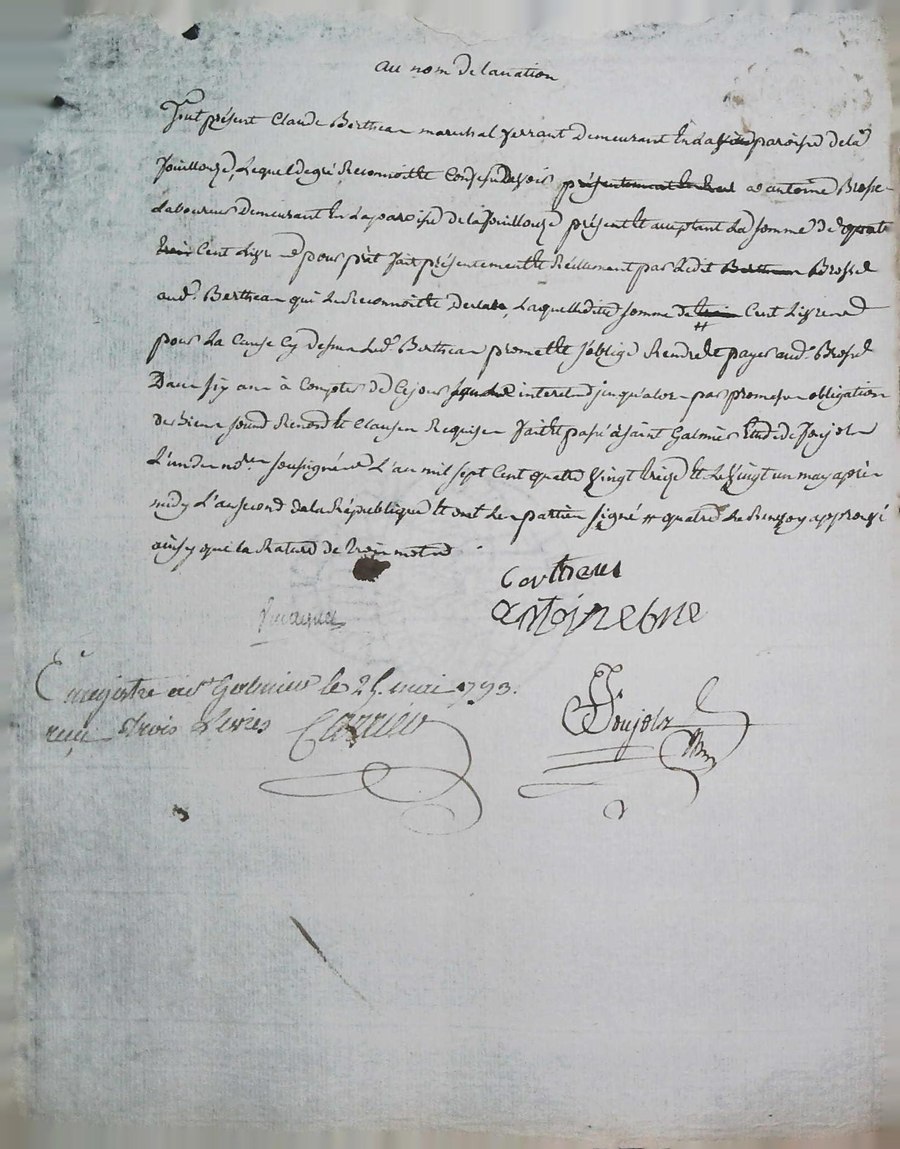 au nom de la nation
fut présent Claude Bertheau marechal ferrant demeurant en la paroisse de la
fouillouze, lequel de gré Reconnoit et Confesse devoir a antoine Brosse
laboureur demeurant en la paroisse de la fouillouze présent et acceptant la somme de quatre
Cent livre pour prêt fait présentement et Réellement par ledit Brosse
aud. Bertheau qui le Reconnoit et declare, laquelle dite somme de # Cent livre
pour la Cause Cy dessus led. Bertheau promet et s'oblige Rendre et payer aud. Brosse
Dans six ans à Compter de Ce jour sans interest jusqu'alors par promesse obligation
de biens soumd Renond et Clauses Requises fait et passé à saint Galmier Etude de Joujol
l'un des no.res soussigné l'an mil sept Cent quatre Vingt treize et le Vingt un may après
midy L'an second de la République et ont les parties signé # quatre approuvé
ainsy que la Rature de trois mots
antoine
Enregistré a St Galmier le 25 mai 1793.
reçu trois livres
Joujols